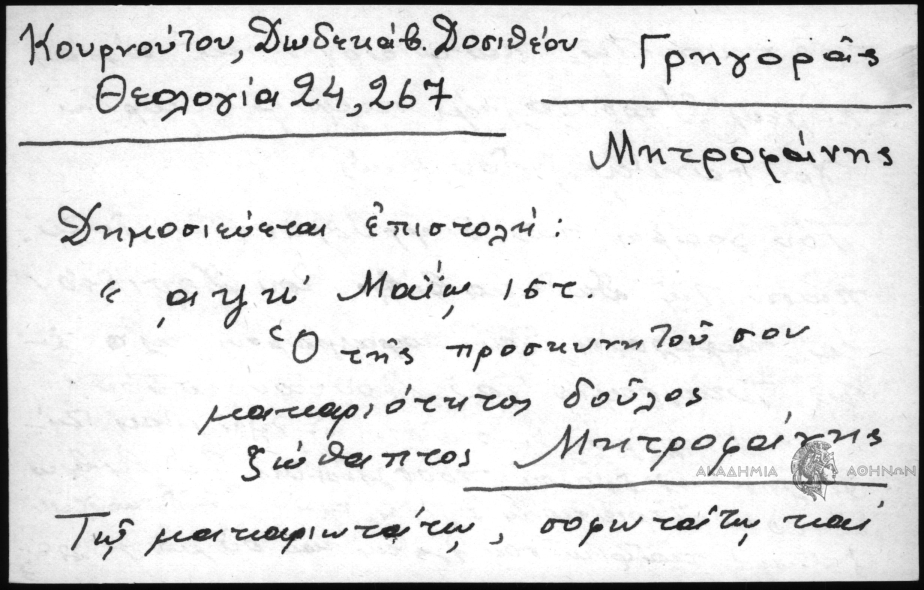 Κουρνούτου, Δωδεκάβ. Δοσιθέου
Θεολογία 24, 267
Γρηγορᾶς
Μητροφάνης
Δημοσιεύεται ἐπιστολή:
“ ͵αψκ´ Μαΐῳ 15τ.
Ὁ τῆς προσκυνητοῦ σου
μακαριότητος δοῦλος
ζώθαπτος Μητροφάνης
ΑΚΑΔΗΜΙΑ ΑΘΗΝΩΝ
Τῷ μακαριωτάτῳ, σοφωτάτῳ καί